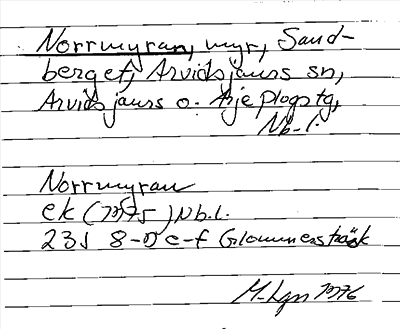 Norrmyran, myr, Sand-
berget, Arvidsjaurs sn,
Arvidsjaurs o. Arjeplogs tg,
Nb. l.
Norrmyran
ek (1975) Nb.l.
23J 8-9 e-f Glommersträsk
M-Lgn 1976